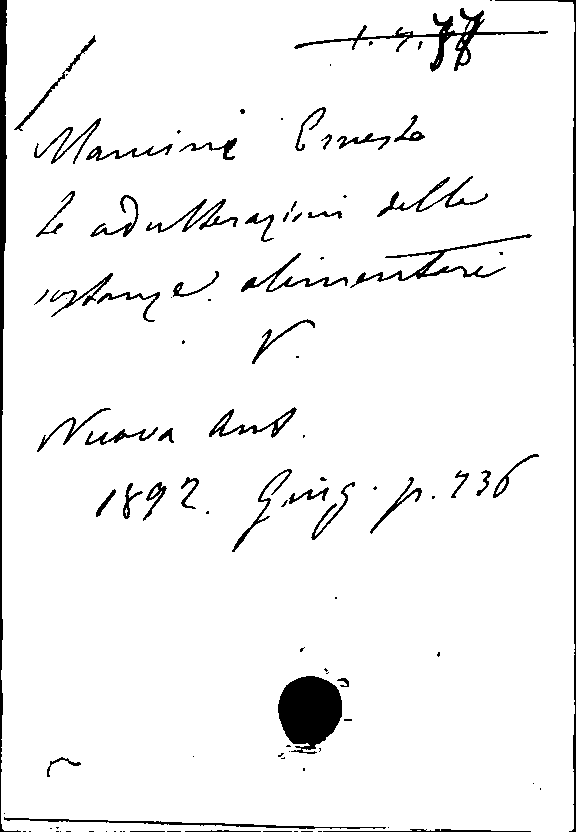 Mancini Ernesto
Le adulterazioni delle
sostanze alimentari
V.
Nuova Ant.
1892. Giug. p. 736